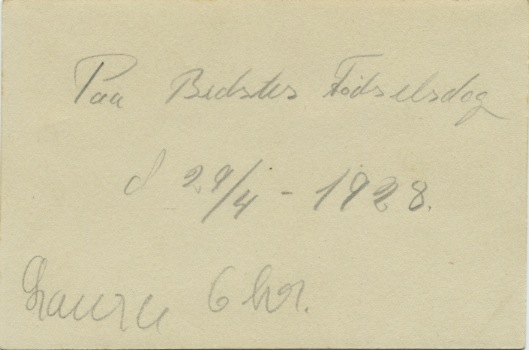 Paa Bedstes Fødselsdag
d 29/4 - 1928.
Laura 6 kr.